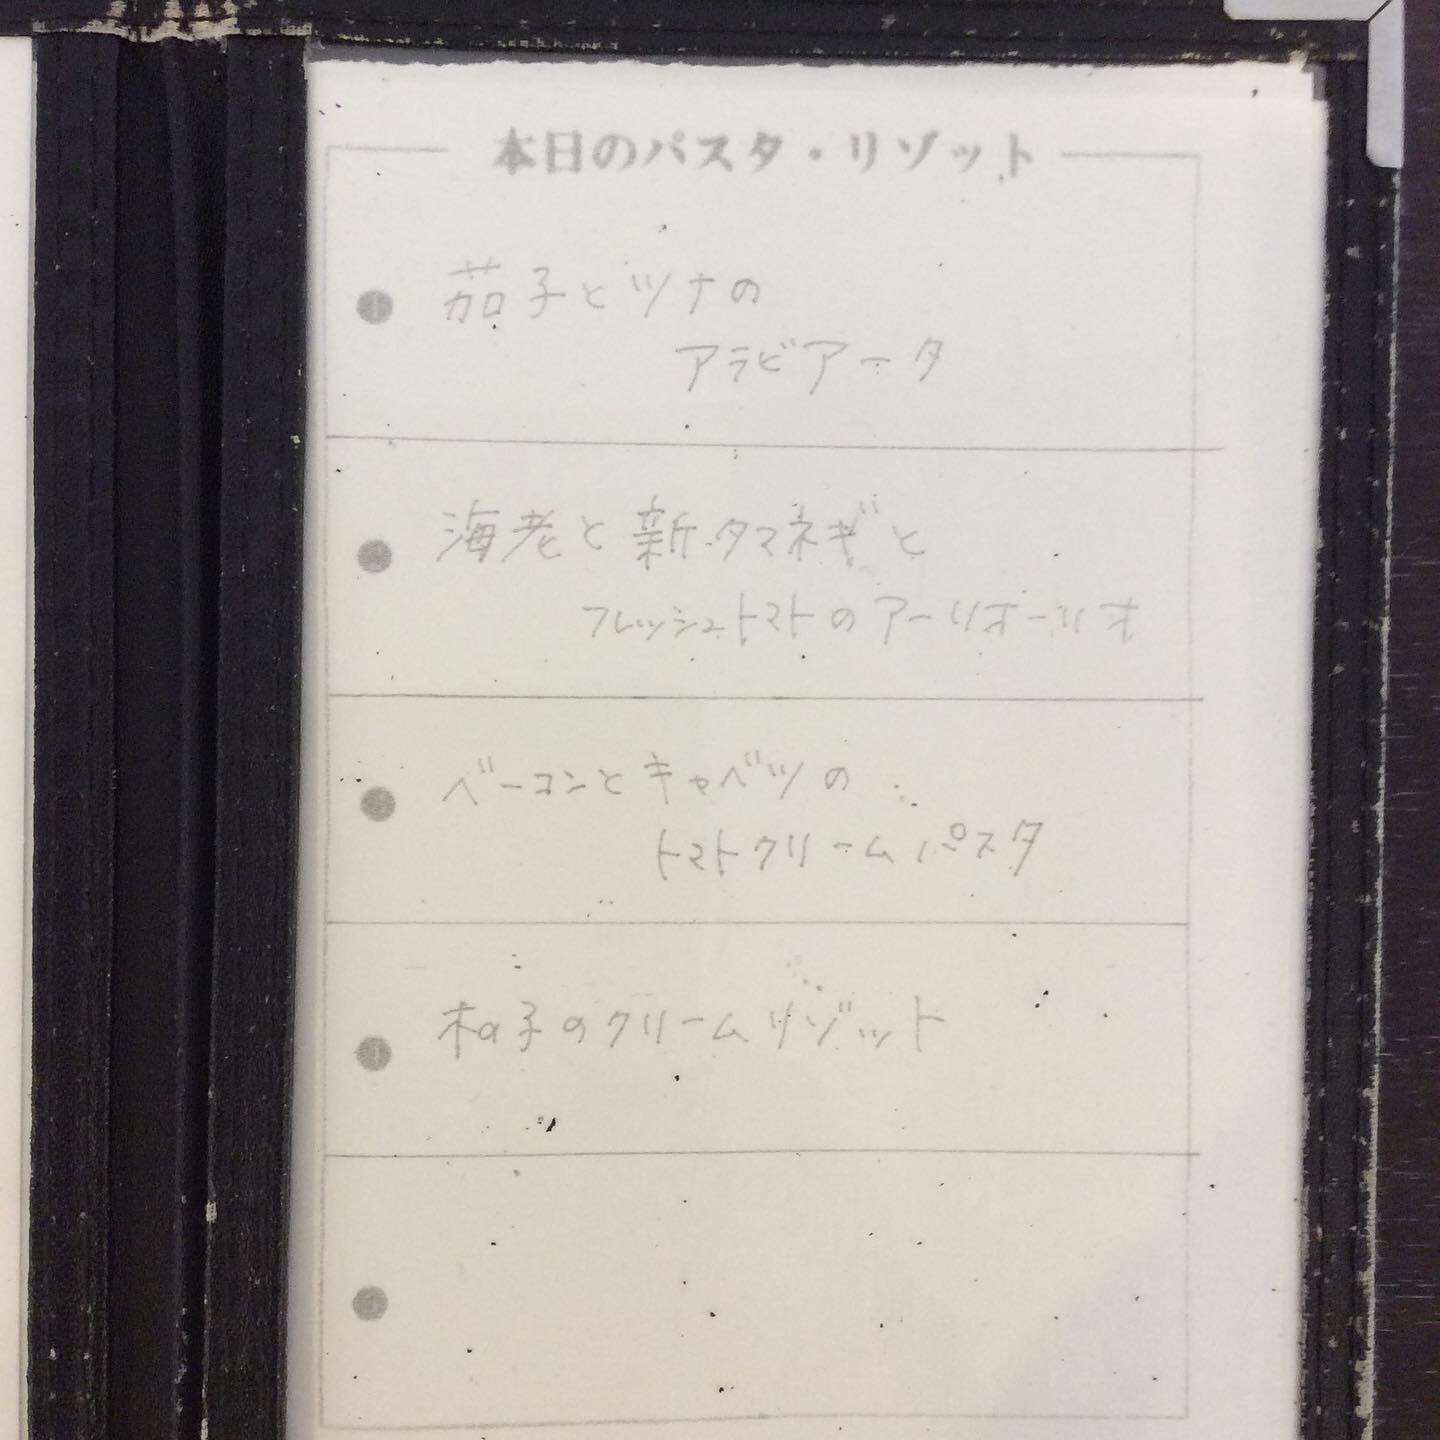 本日のパスタ・リゾット
❶ 茄子とツナの
アラビアータ
❷ 海老と新タマネギと
フレッシュトマトのアーリオオーリオ
❸ ベーコンとキャベツの
トマトクリームパスタ
❹ 柏子のクリームリゾット
❺